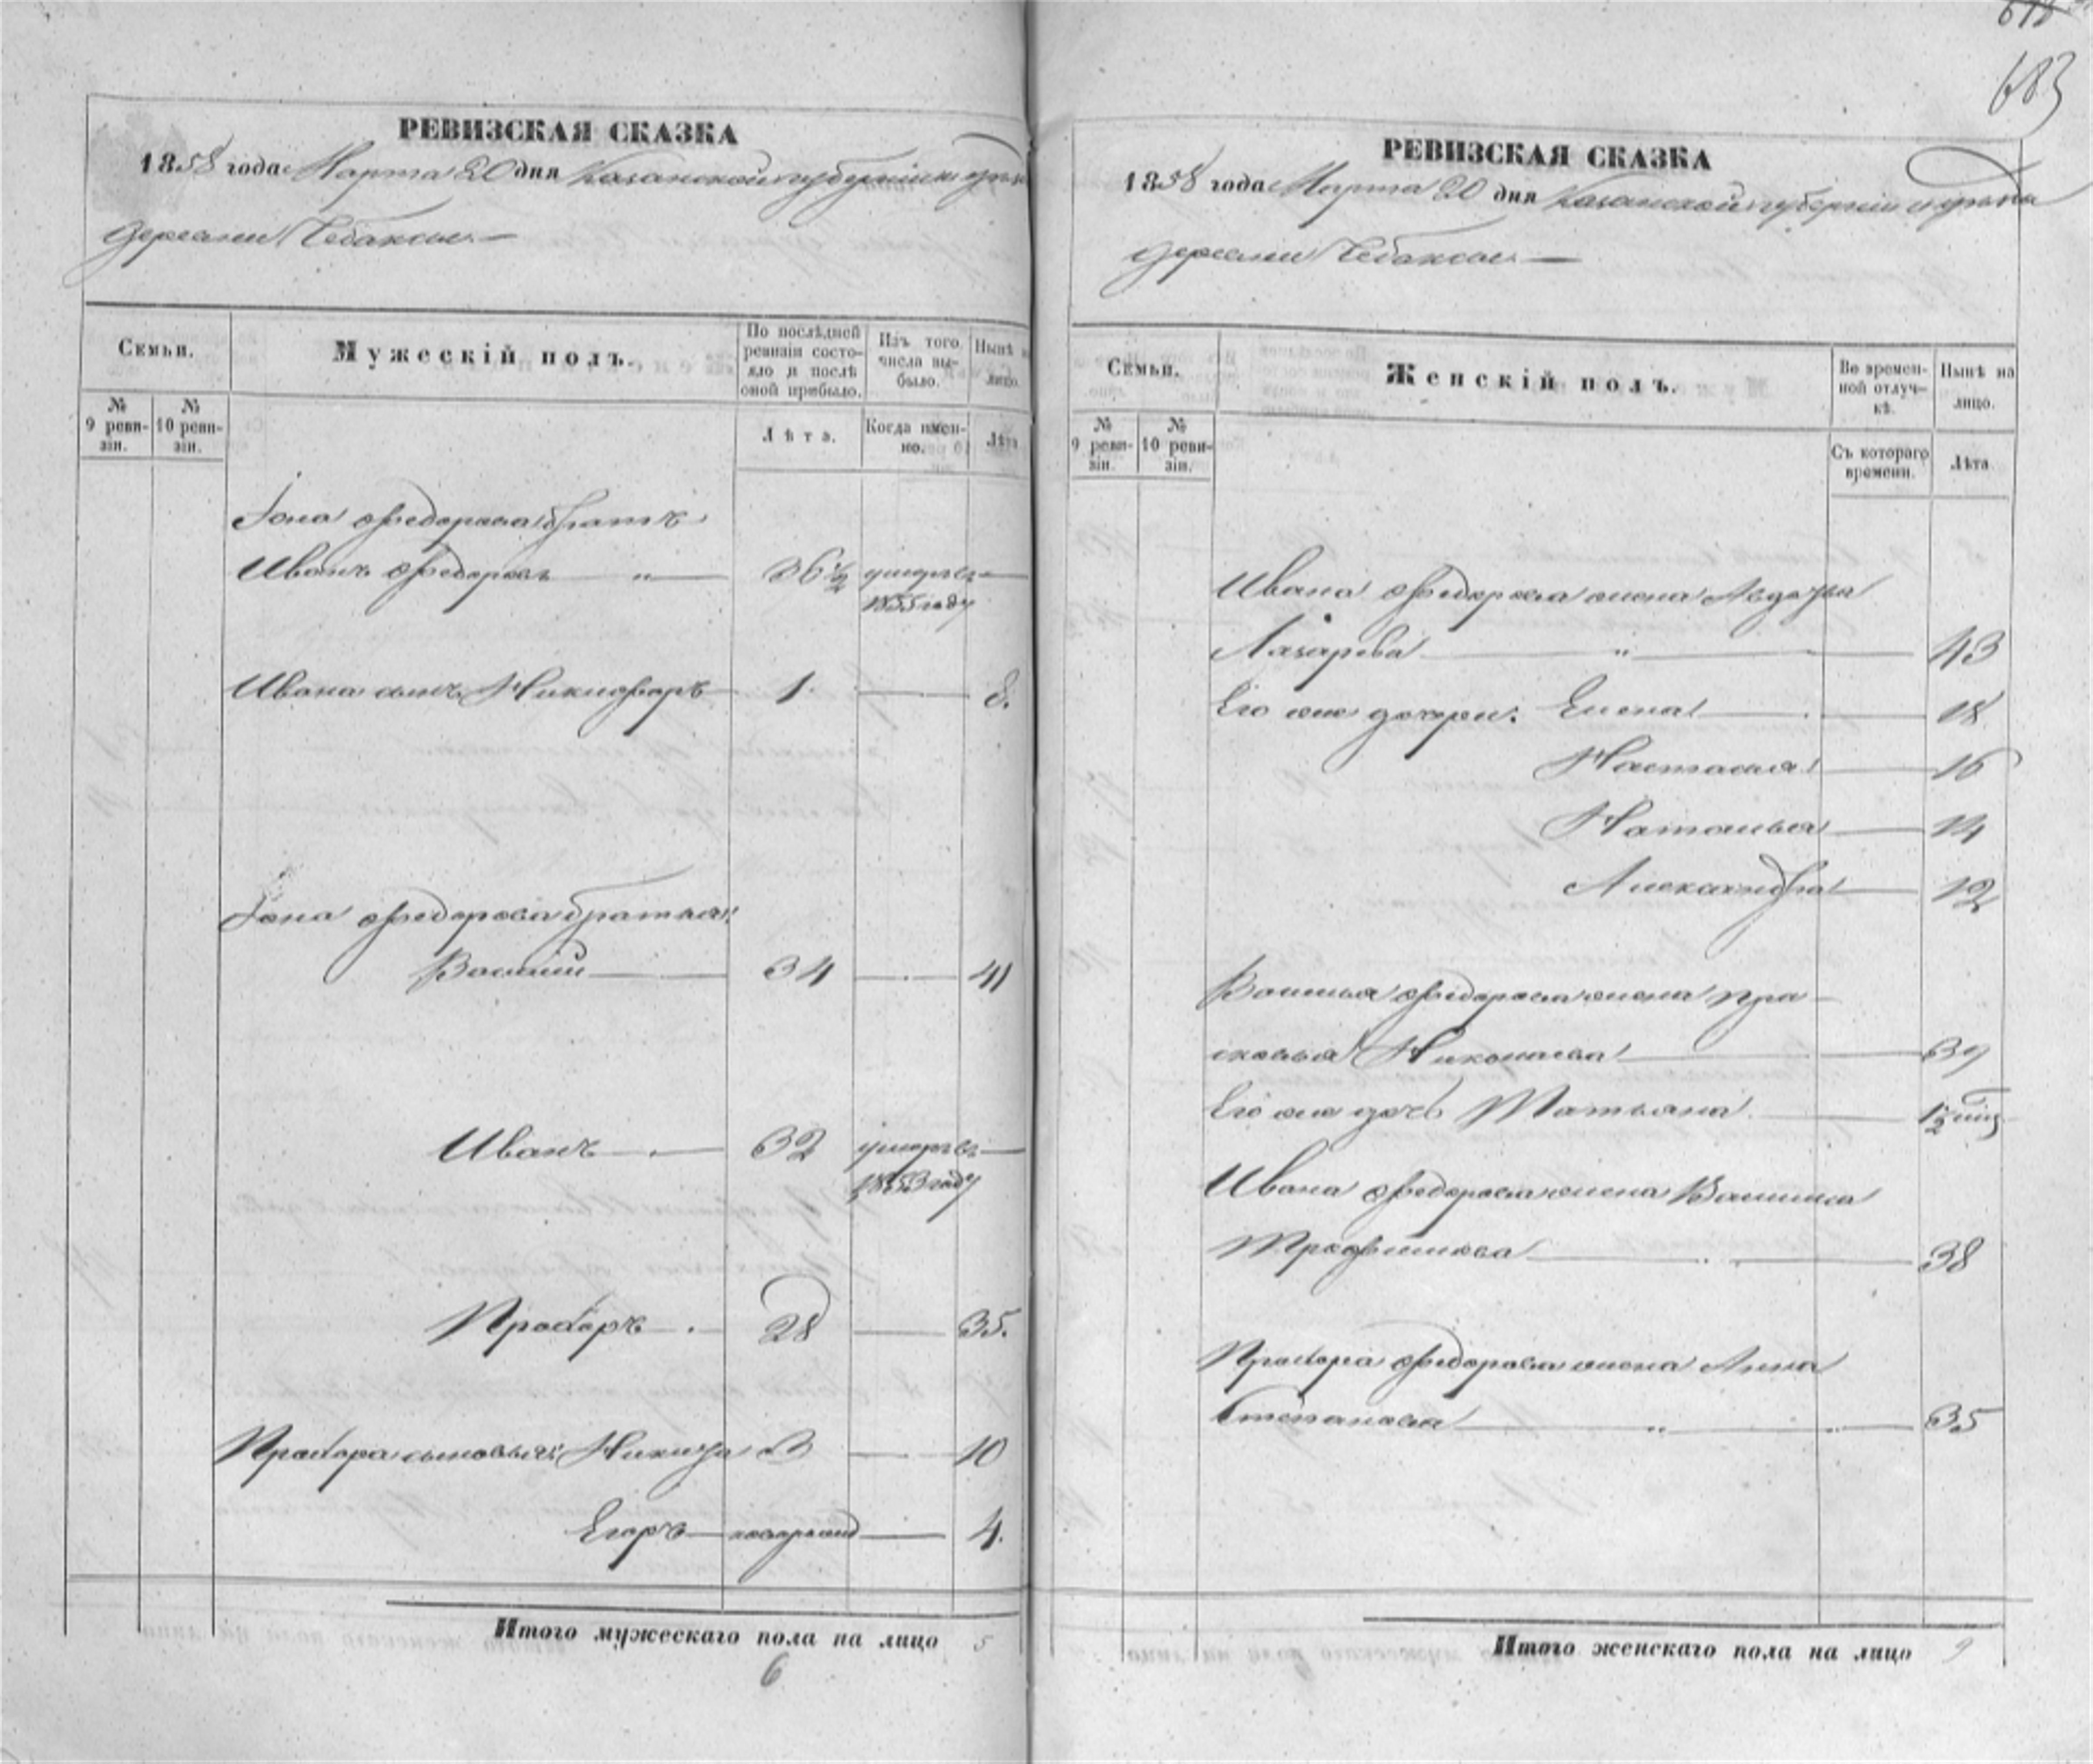 РЕВИЗСКАЯ СКАЗКА
1858 года Марта 20 дня Казанской губерніи и уѣзда
деревни Чебаксы.—
Семьи.
Мужескій полъ.
По послѣдней ревизіи состояло и послѣ оной прибыло.
Изъ того числа выбыло.
Нынѣ на лицо.
№ 9 ревизіи.
№ 10 ревизіи.
Лѣта.
Когда именно.
Лѣта
Іона Ѳедорова братъ
Иванъ Ѳедоровъ — " — 36½ умеръ въ —
1855 году
Ивана сынъ Никифоръ 1. — 8.
Іона Ѳедорова братья:
Василій — 34 — 41
Иванъ — 32 умеръ въ —
1853 году
Прохоръ — 28 — 35.
Прохора сыновья: Никита 3 — 10
Егоръ — новорожд — 4.
Итого мужескаго пола на лицо 5
6
683
РЕВИЗСКАЯ СКАЗКА
1858 года Марта 20 дня Казанской губерніи и уѣзда
деревни Чебаксы.—
Семьи.
Женскій полъ.
Во временной отлучкѣ.
Нынѣ на лицо.
№ 9 ревизіи.
№ 10 ревизіи.
Съ котораго времени.
Лѣта
Ивана Ѳедорова жена Авдотья
Лазарева — " — 43
Его же дочери: Елена — 18
Настасья — 16
Наталья — 14
Александра — 12
Василья Ѳедорова жена Пра—
сковья Николаева — 39
Его же дочь Татьяна — ½
Ивана Ѳедорова жена Василиса
Трофимова — 38
Прохора Ѳедорова жена Анна
Степанова — " — 35
Итого женскаго пола на лицо 9